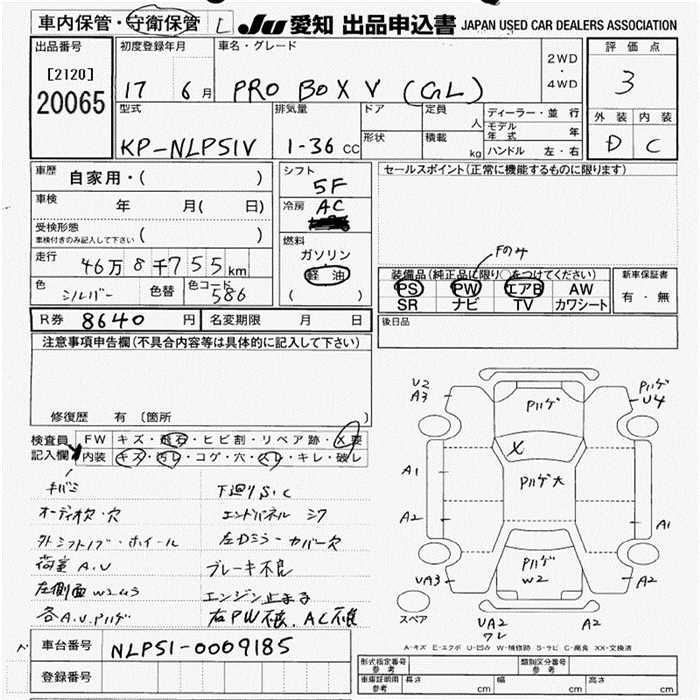 車内保管・守衛保管 L JU 愛知 出品申込書 JAPAN USED CAR DEALERS ASSOCIATION
出品番号 初度登録年月 車名・グレード 2WD・4WD 評価点
[2120] 17 6月 PRO BOX V (GL) 3
20065 型式 排気量 ドア 定員 人 ディーラー・並行 外装 内装
形状 積載 kg モデル年式 年
KP-NLP51V 1-36 CC ハンドル 左・右 D C
車歴 自家用・( ) シフト 5F セールスポイント(正常に機能するものに限ります)
車検 年 月( 日) 冷房 AC
受検形態 ( )
車検付きのみ記入して下さい
燃料 ガソリン Fのみ
走行 46万8千755km 軽油 装備品(純正品に限り○をつけてください) 新車保証書
色 シルバー 色替 色コード 586 ( ) PS PW エアB AW 有・無
SR ナビ TV カワシート
R券 8640円 名変期限 月 日 後日品
注意事項申告欄(不具合内容等は具体的に記入して下さい)
修復歴 有 (箇所 )
検査員 FW キズ・飛石・ヒビ割・リペア跡・X要
記入欄 内装 キズ・汚レ・コゲ・穴・スレ・キレ・破レ
キバミ 下廻りS.C
オーディオ欠・穴 エンドパネル シワ
外シフトノブ・ホイール 左Dミラーカバー欠
荷室A.U ブレーキ不良
左側面W2W3 エンジン止まる
各A.U.Pハゲ 右PW不良、AC不良
U2
A3
Pハゲ
U4
Pハゲ
X
A1
Pハゲ大
A2
A1
Pハゲ
W2
UA3
A2
スペア
UA2
ワレ
A2
A-キズ E-エクボ U-凹み W-補修跡 S-サビ C-腐食 XX-交換済
車台番号 NLP51-0009185
登録番号
型式指定番号 参考 類別区分番号 参考
車庫証明用 参考 長さ cm 幅 cm 高さ cm